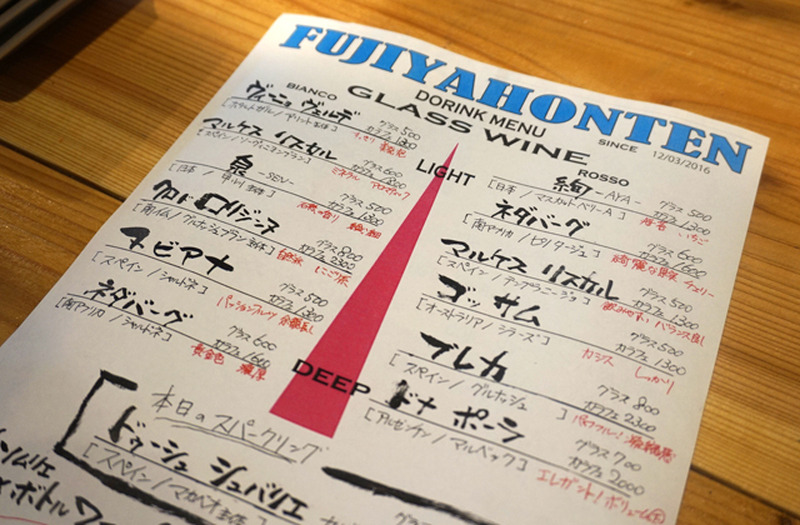 FUJIYAHONTEN
DORINK MENU
SINCE 12/03/2016
GLASS WINE
BIANCO
ヴィーニョ ヴェルデ
グラス 500
カラフェ 1300
マルケス リスカル
[スペイン/
グラス 600
カラフェ 1800
泉 -SEN-
[日本/甲州主体]
グラス 500
カラフェ 1300
クロ ロリジーヌ
グラス 800
カラフェ 2300
ネビアナ
[スペイン/シャルドネ]
グラス 500
カラフェ 1300
パッションフルーツ
ネダバーグ
[南アフリカ/シャルドネ]
グラス 600
カラフェ 1600
黄金色 濃厚
LIGHT
DEEP
ROSSO
絢 -AYA-
[日本/マスカットベリーA]
グラス 500
カラフェ 1300
いちご
ネダバーグ
[南アフリカ/ピノタージュ]
グラス 600
カラフェ 1600
綺麗な果実 チェリー
マルケス リスカル
[スペイン/テンプラニージョ]
グラス 500
カラフェ 1300
飲みやすい バランス良し
ゴッサム
[オーストラリア/シラーズ]
グラス 500
カラフェ 1300
カシス しっかり
ブレカ
[スペイン/グルナッシュ]
グラス 800
カラフェ 2300
パワフル!
ドナ ポーラ
[アルゼンチン/マルベック]
グラス 700
カラフェ 2000
エレガント!ボリューム
本日のスパークリング
ドゥーシュ シュバリエ
[スペイン/マカベオ主体]
グラス
ソムリエ
ボトル ワ